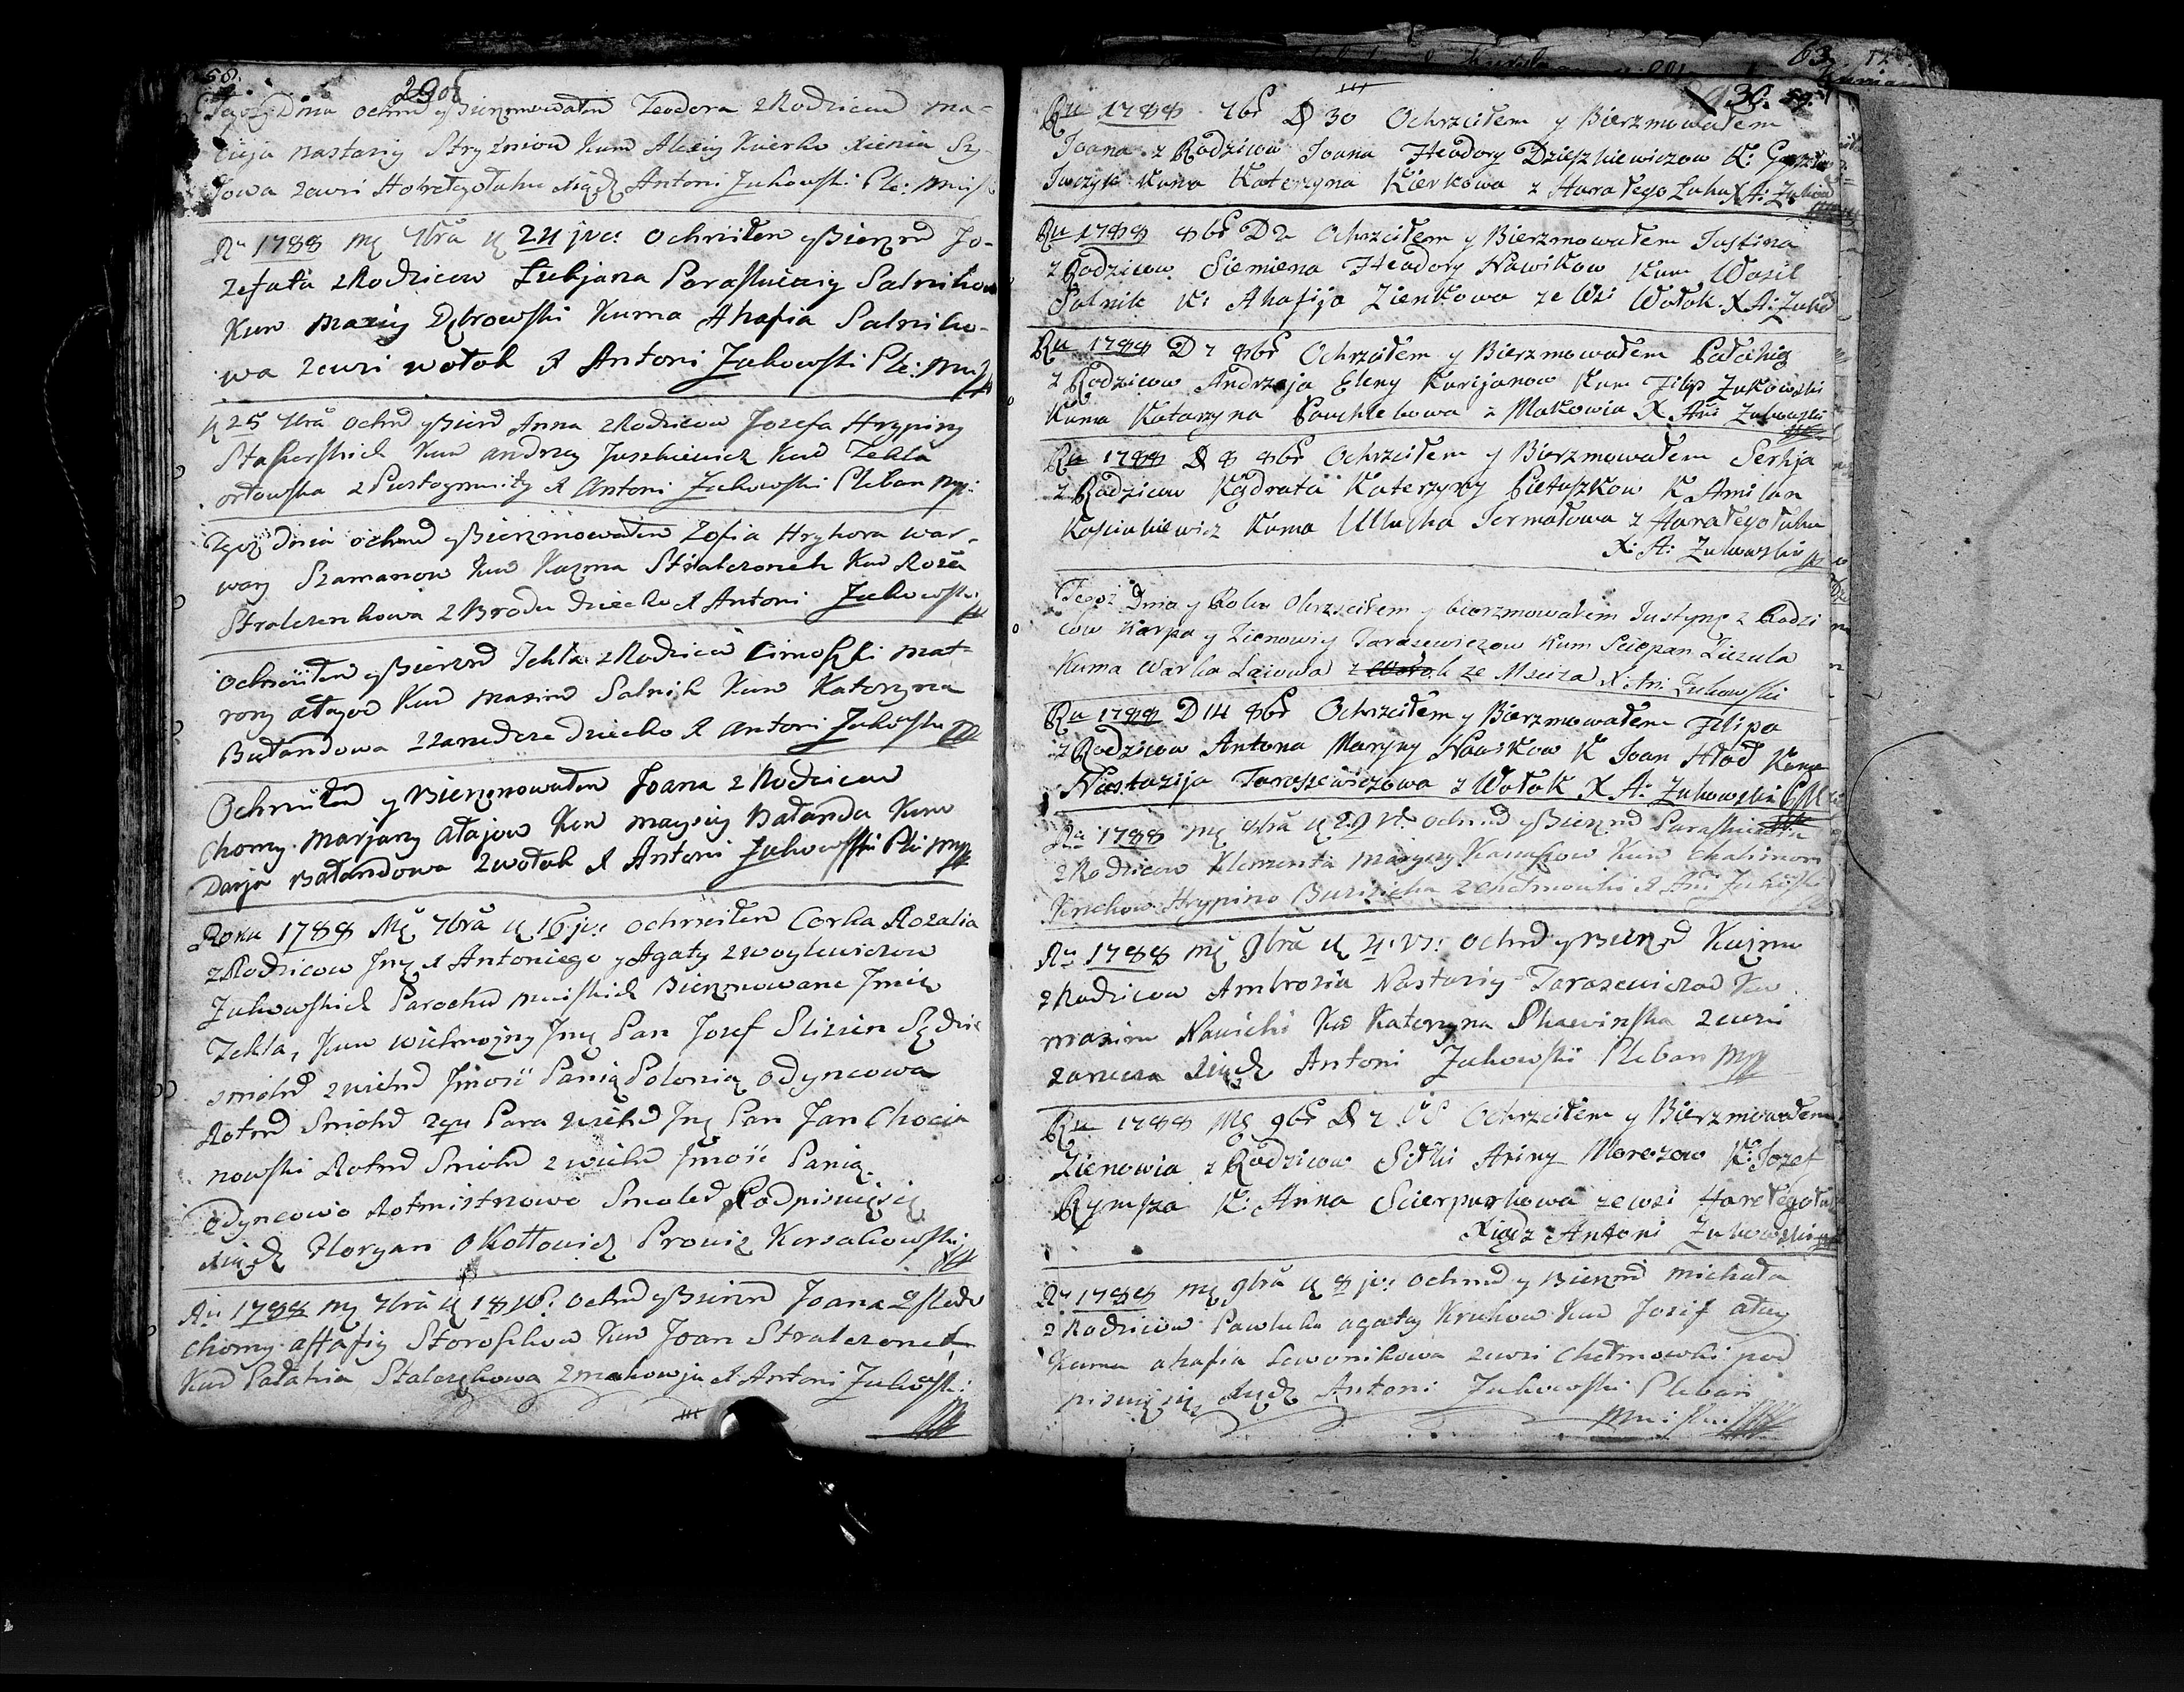 58.
290
Tegoż Dnia ochrd y Bierzmowałem Teodora z Rodzicow Ma-
cieja Nastazij Stryżniow Kum Alexij Kierko Xienia Szy-
łowa zewsi Horełegołuhu Xiądz Antoni Żukowski Ple: Mscis
Ru 1788 Mc 7bra d 24 jvs: Ochrziłem y Bierzmd Jo-
zefata z Rodzicow Łukjana Paraskiewij Salnikow
Kum Maxij Dąbrowski Kuma Ahafia Salniko-
wa zewsi Wołok X Antoni Żukowski Ple: Ms
d 25 7bra Ochrd y Bierd Anna z Rodzicow Jozefa Hrypiny
Kum Andrzey Juszkiewicz Kud Tekla
Orłowska z Pustogmity X Antoni Żukowski Pleban
Tegoż dnia ochrd y Bierzmowałem Zofia Hryhora War-
wary Szamanow Kum Kuzma Stralczonek Kud Roza
Stralczonkowa z Brodu dziecko X Antoni Żukowski
Ochrziłem y Bierzmd Tekla z Rodzicow Cimoszki Mat-
rony Ałayow Kum Maxim Salnik Kum Katerzyna
Bałandowa z Zarzecza dziecko X Antoni Żukowski
Ochrziłem y Bierzmowałem Joana z Rodzicow
Chomy Marjany Ałajow Kum Maysiey Bałanda Kum
Darja Bałandowa z Wołok X Antoni Żukowski Ple:
Roku 1788 Mc 7bra d 16 jvs: ochrzciłem Corka Rozalia
z Rodzicow Jmc X Antoniego y Agaty z Woylewiczow
Żukowskich Parochu Msciskich Bierzmowane Jmie
Tekla, Kum wielmożny Jmc Pan Jozef Slizien Sędzia
smold z wielmd Jmosć Panią Polonią Odyncowa
Rotmd Smold 2ga Para z wielmd Jmc Pan Jan Chocia
nowski Rotmd Smold z wielmd Jmosć Panią
Odyncowo Rotmistrzowo Smoled Podpisujęsię
Xiądz Floryan Okołowicz Prowiz Korsakowski
Ru 1788 Mc 7bra d 18 jvs: Ochrd y Bierzd Joana
Chomy Ahafij Storoszkow Kum Joan Stralczonek
Kud Pałahia z Makowja X Antoni Żukowski
63
30. 59.
Ru 1788 7br D 30 Ochrzciłem y Bierzmowałem
Joana z Rodzicow Joana Heodory Dzieszkiewiczow K:
Kuma Katerzyna Kierkowa z Harałego Łuhu X A: Żukow
Ru 1788 8br D 2 Ochrzciłem y Bierzmowałem Justina
z Rodzicow Siemiena Heodory Nawikow Kum Wasil
Salnik K: Ahafija Zienkowa ze Wsi Wołok X A: Żukow
Ru 1788 D 7 8br Ochrzciłem y Bierzmowałem Pałahią
z Rodzicow Andrzeja Eleny Karijanow Kum Filip Żukowski
Kuma Katarzyna Pauchlebowa z Makowia X Ani Żukowski
Ru 1788 D 8 8br Ochrzciłem y Bierzmowałem Serhja
z Rodzicow Kądrata Katerzyny Pietuszkow K Amilan
Kasciukiewicz Kuma Ullucha Jermałowa z Harałegołuhu
X: A: Żukowski
Tegoż Dnia y Roku Ohrzciłem y bierzmowałem Justynę z Rodzi
cow Karpa y Zienowiy Taraszewiczow Kum Sciepan Ziezula
Kuma Warka Laiowa z Wołok ze Msciża X An: Żukowski
Ru 1788 D 14 8br Ochrzciłem y Bierzmowałem Filipa
z Rodzicow Antona Maryny Nawikow K Joan Hład Kuma
Nastazija Taraszewiczowa z Wołok X A: Żukowski PM
Ru 1788 Mc 8bra d 29 vs: ochrd y Bierzmd Paraskiewia
z Rodzicow Klementa Maryny Kanaszow Kum Chalimon
Kruhow Hrypina z Chełmowki X Ani Żukowski
Ru 1788 Mc 9bra d 4. vs: Ochrd y Bierzd Kuzma
z Rodzicow Ambrozia Nastazij Taraszewiczow Ku
Maxim Nawicki Kud Katerzyna Skawinska zewsi
Zarzecza Xiądz Antoni Żukowski Pleban
Ru 1788 Mc 9br D 7 VS Ochrzciłem y Bierzmowałem
Zienowia z Rodzicow Siłki Ariny Morozow K: Jozef
Rymsza K: Anna Scierpurkowa zewsi Harełegołuh
Xiądz Antoni Żukowski
Ru 1788 Mc 9bra d 8 jvs: ochrd y Bierzmd Michała
z Rodzicow Pawluka Agaty Kruhow Kud Jozif Ałay
Kuma Ahafia Lewonikowa zewsi Chełmowki pod
pisuję się Xiądz Antoni Żukowski Pleban